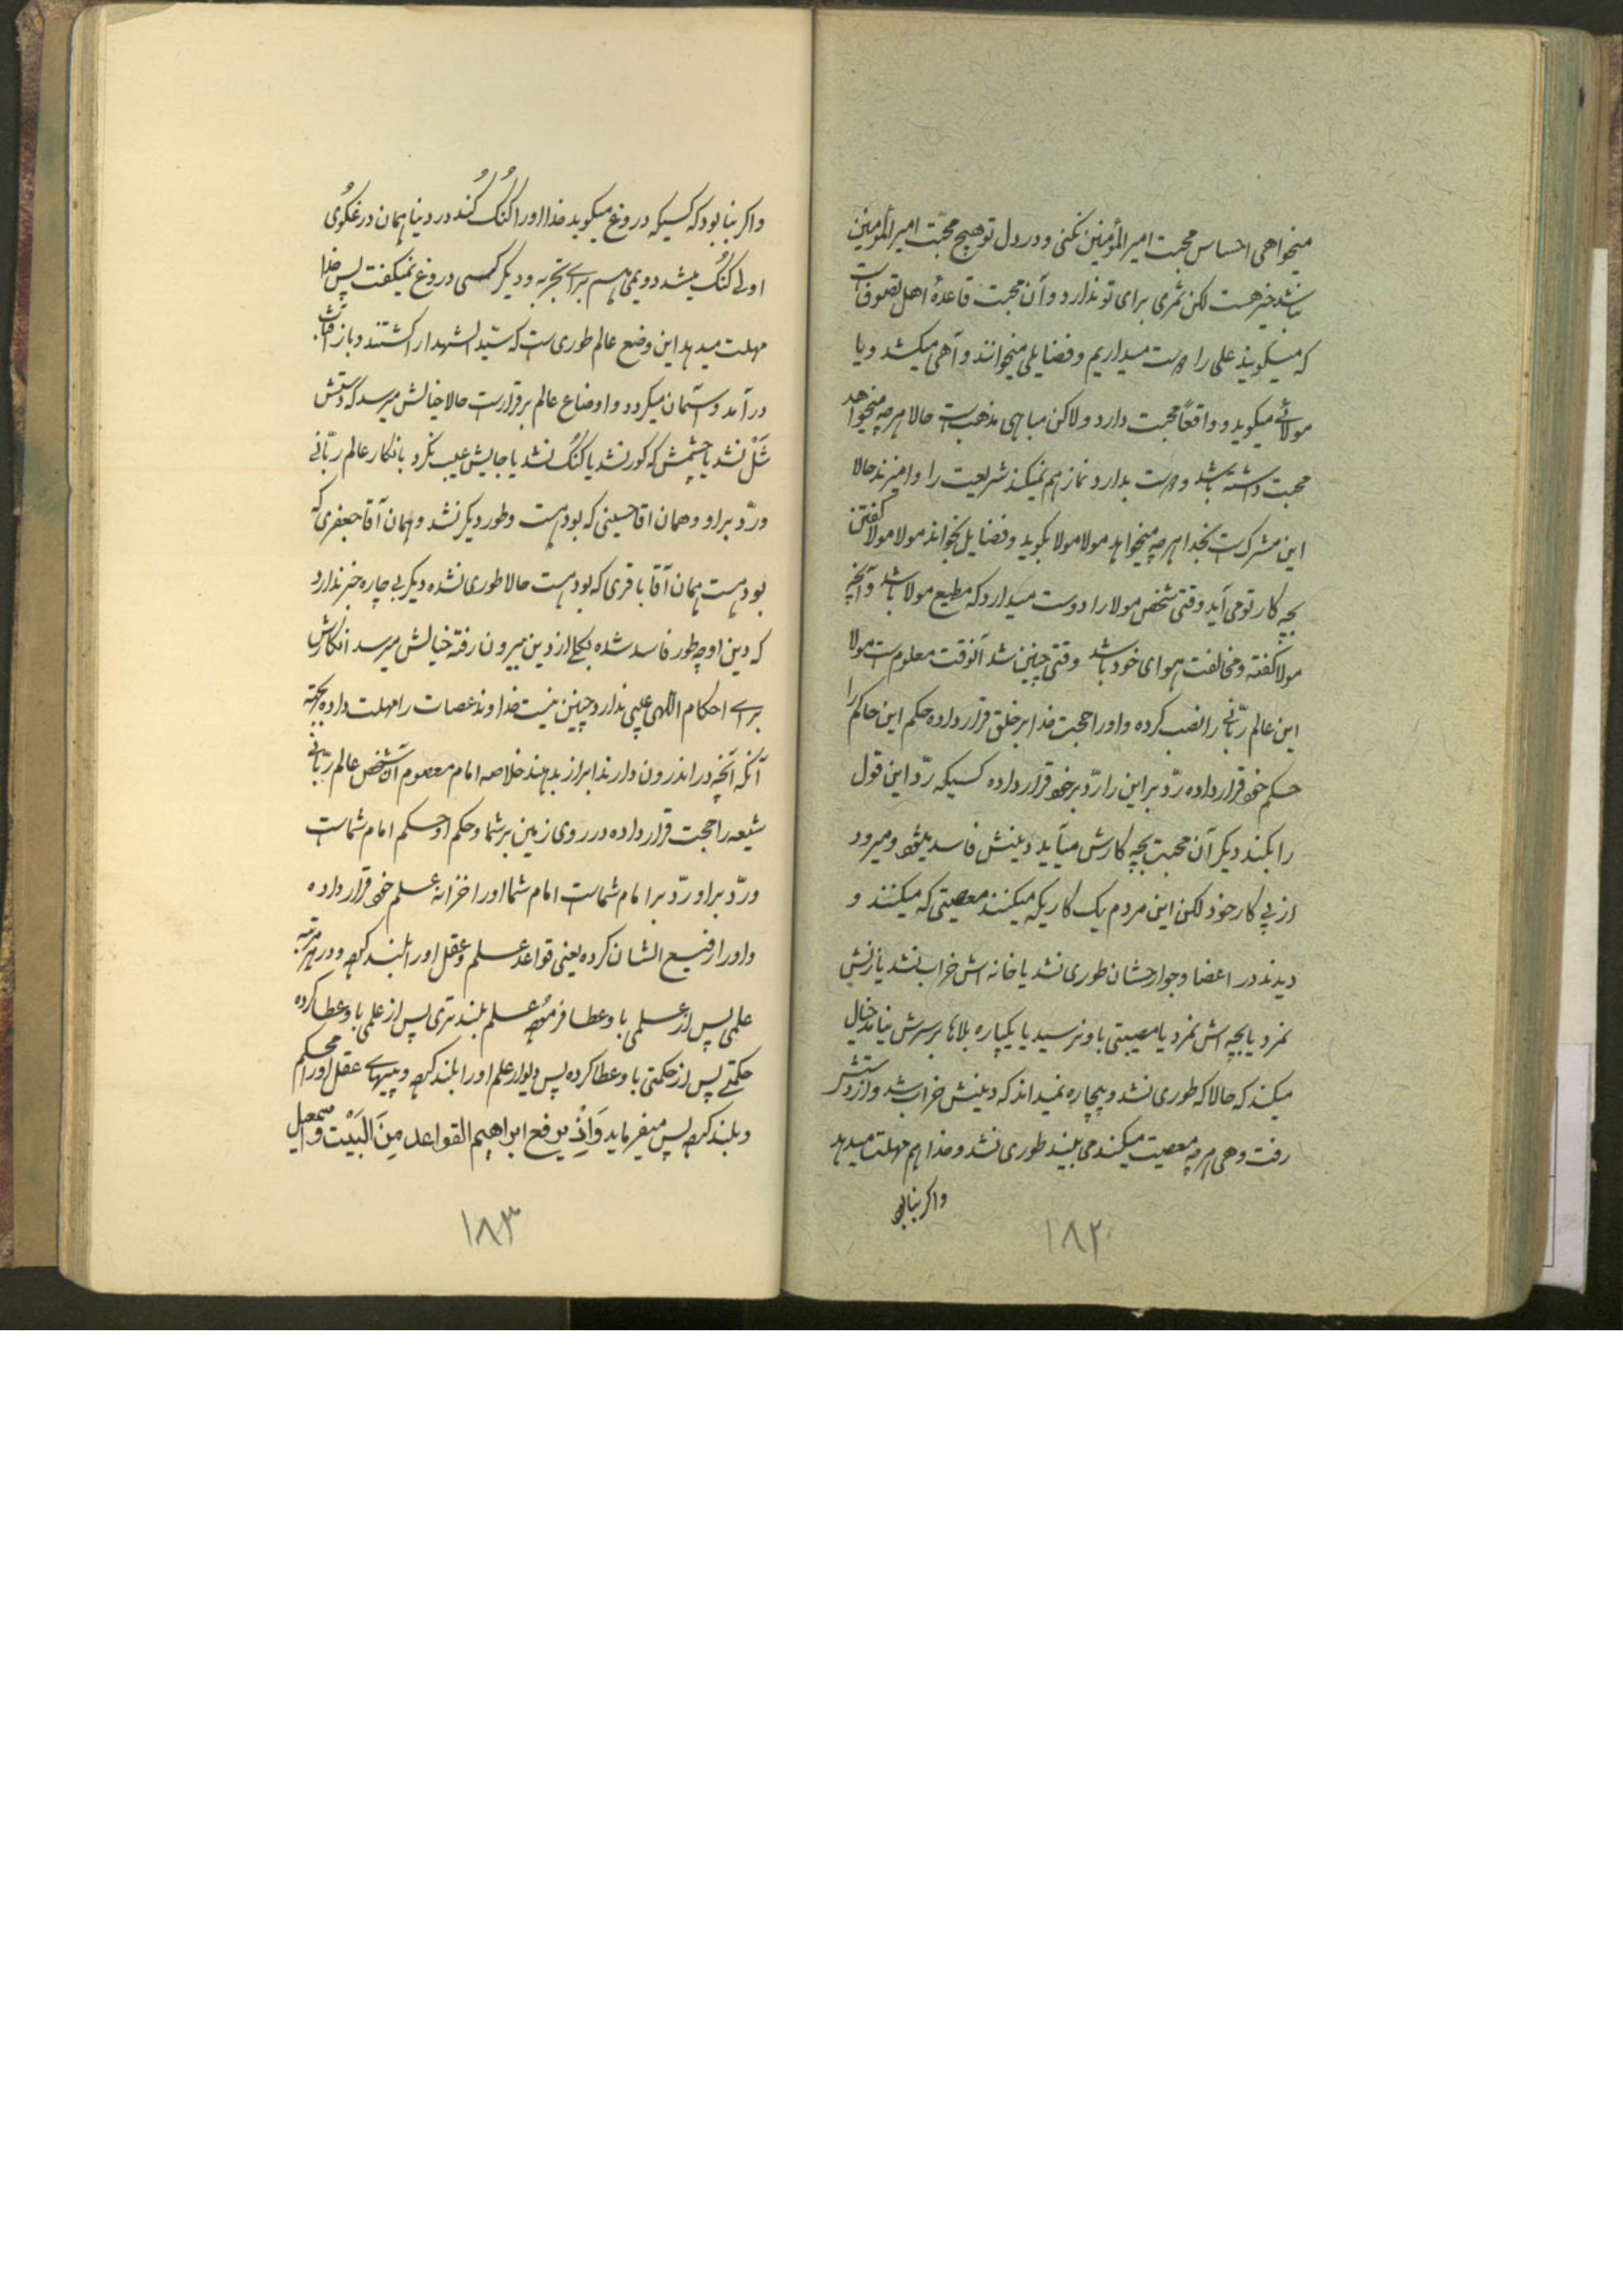 میخواهی احساس محبت امیرالمؤمنین نکنی و در دل تو هیچ محبّت امیرالمؤمنین
نباشد خیر هست لکن ثمری برای تو ندارد و آن محبت قاعدهٔ اهل تصوف است
که میگویند علی را دوست میداریم و فضایلی میخوانند و آهی میکشد و یا
مولائی میگوید و واقعاً محبت دارد ولاکن مباهی مذهب است حالا هرچه میخواهد
محبت داشته باشد و دوست بدارد نماز هم نمیکند شریعت را وامیزند حالا
این مشرک است بخدا هرچه میخواهد مولا مولا بگوید و فضایل بخواند مولا مولا گفتن
بچه کار تو می آید وقتی شخص مولا را دوست میدارد که مطیع مولا باشد و آنچه
مولا گفته و مخالفت هوای خود باشد وقتی چنین شد آنوقت معلوم است مولا
این عالم ربّانی را نصب کرده و او را حجت خدا بر خلق قرار داده حکم این حاکم را
حکم خود قرار داده ردّ بر این را ردّ بر خود قرار داده کسیکه ردّ این قول
را بکند دیگر آن محبت بچه کارش میآید دینش فاسد میشود و میرود
از پی کار خود لکن این مردم یک کاریکه میکنند معصیتی که میکنند و
دیدند در اعضا و جوارحشان طوری نشد یا خانه اش خراب نشد یا زنش
نمرد یا بچه اش نمرد یا مصیبتی باو نرسید یا یکپاره بلاها بر سرش نیامد خیال
میکند که حالا که طوری نشد و بیچاره نمیداند که دینش خراب شد و از دستش
رفت و هی هرچه معصیت میکند می بیند طوری نشد و خدا هم مهلت میدهد
و اگر بنا بود
۱۸۲
و اگر بنا بود که کسیکه دروغ میگوید خدا او را گُنگ کُند در دنیا همان دروغگوی
اولی گنگ میشد دویمی هم برای تجربه و دیگر کسی دروغ نمیگفت پس خدا
مهلت میدهد این وضع عالم طوری است که سیّد الشهدا را کشتند و باز آفتاب
درآمد و آسمان میگردد و اوضاع عالم برقرار است حالا خیالش میرسد که دستش
شَل نشد یا چشمش که کور نشد یا گنگ نشد یا جایش عیب نکرد بانکار عالم ربّانی
و ردّ بر او و همان آقا حسینی که بود هست و طور دیگر نشد و همان آقا جعفری که
بود هست همان آقا باقری که بود هست حالا طوری نشده دیگر بی چاره خبر ندارد
که دین او چه طور فاسد شده بکلی از دین بیرون رفته خیالش میرسد انکارش
برای احکام اللهی عیبی ندارد چنین نیست خداوند عصات را مهلت داده بجهة
آنکه آنچه در اندرون دارند ابراز بدهند خلاصه امام معصوم آن شخص عالم ربّانی
شیعه را حجت قرار داده در روی زمین بر شما و حکم او حکم امام شماست
و ردّ بر او ردّ بر امام شماست امام شما او را خزانه علم خود قرار داده
و او را رفیع الشان کرده یعنی قواعد علم و عقل او را بلند کرده و در هر مرتبه
علمی پس از علمی باو عطا فرموده علم بلندتری پس از علمی باو عطا کرده
حکمتی پس از حکمتی باو عطا کرده پس دیوار علم او را بلند کرده و پیهای عقل او را محکم
و بلند کرده پس میفرماید وَاِذْ یرفع ابراهیم القواعد مِنَ الْبَیْت وَاسمعیل
۱۸۳